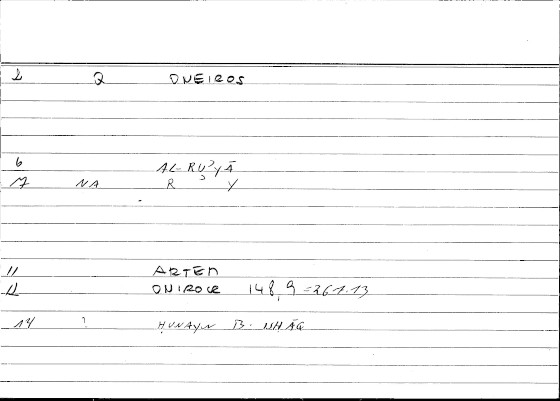 1 2 ONEIROS
6 AL-RUʾYĀ
7 NA R ʾ Y
11 ARTEM
12 ONIROCR 148,9=261.13
14 ḤUNAYN B.